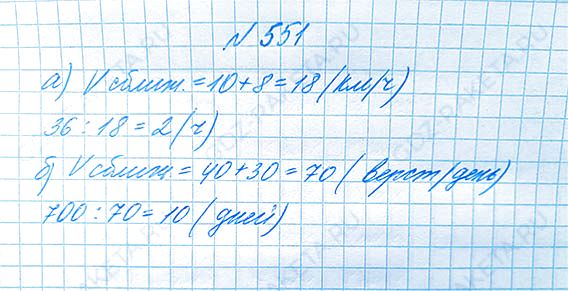 № 551
а) Vсближ. = 10 + 8 = 18 (км/ч)
36 : 18 = 2 (ч)
б) Vсближ. = 40 + 30 = 70 (верст/день)
700 : 70 = 10 (дней)